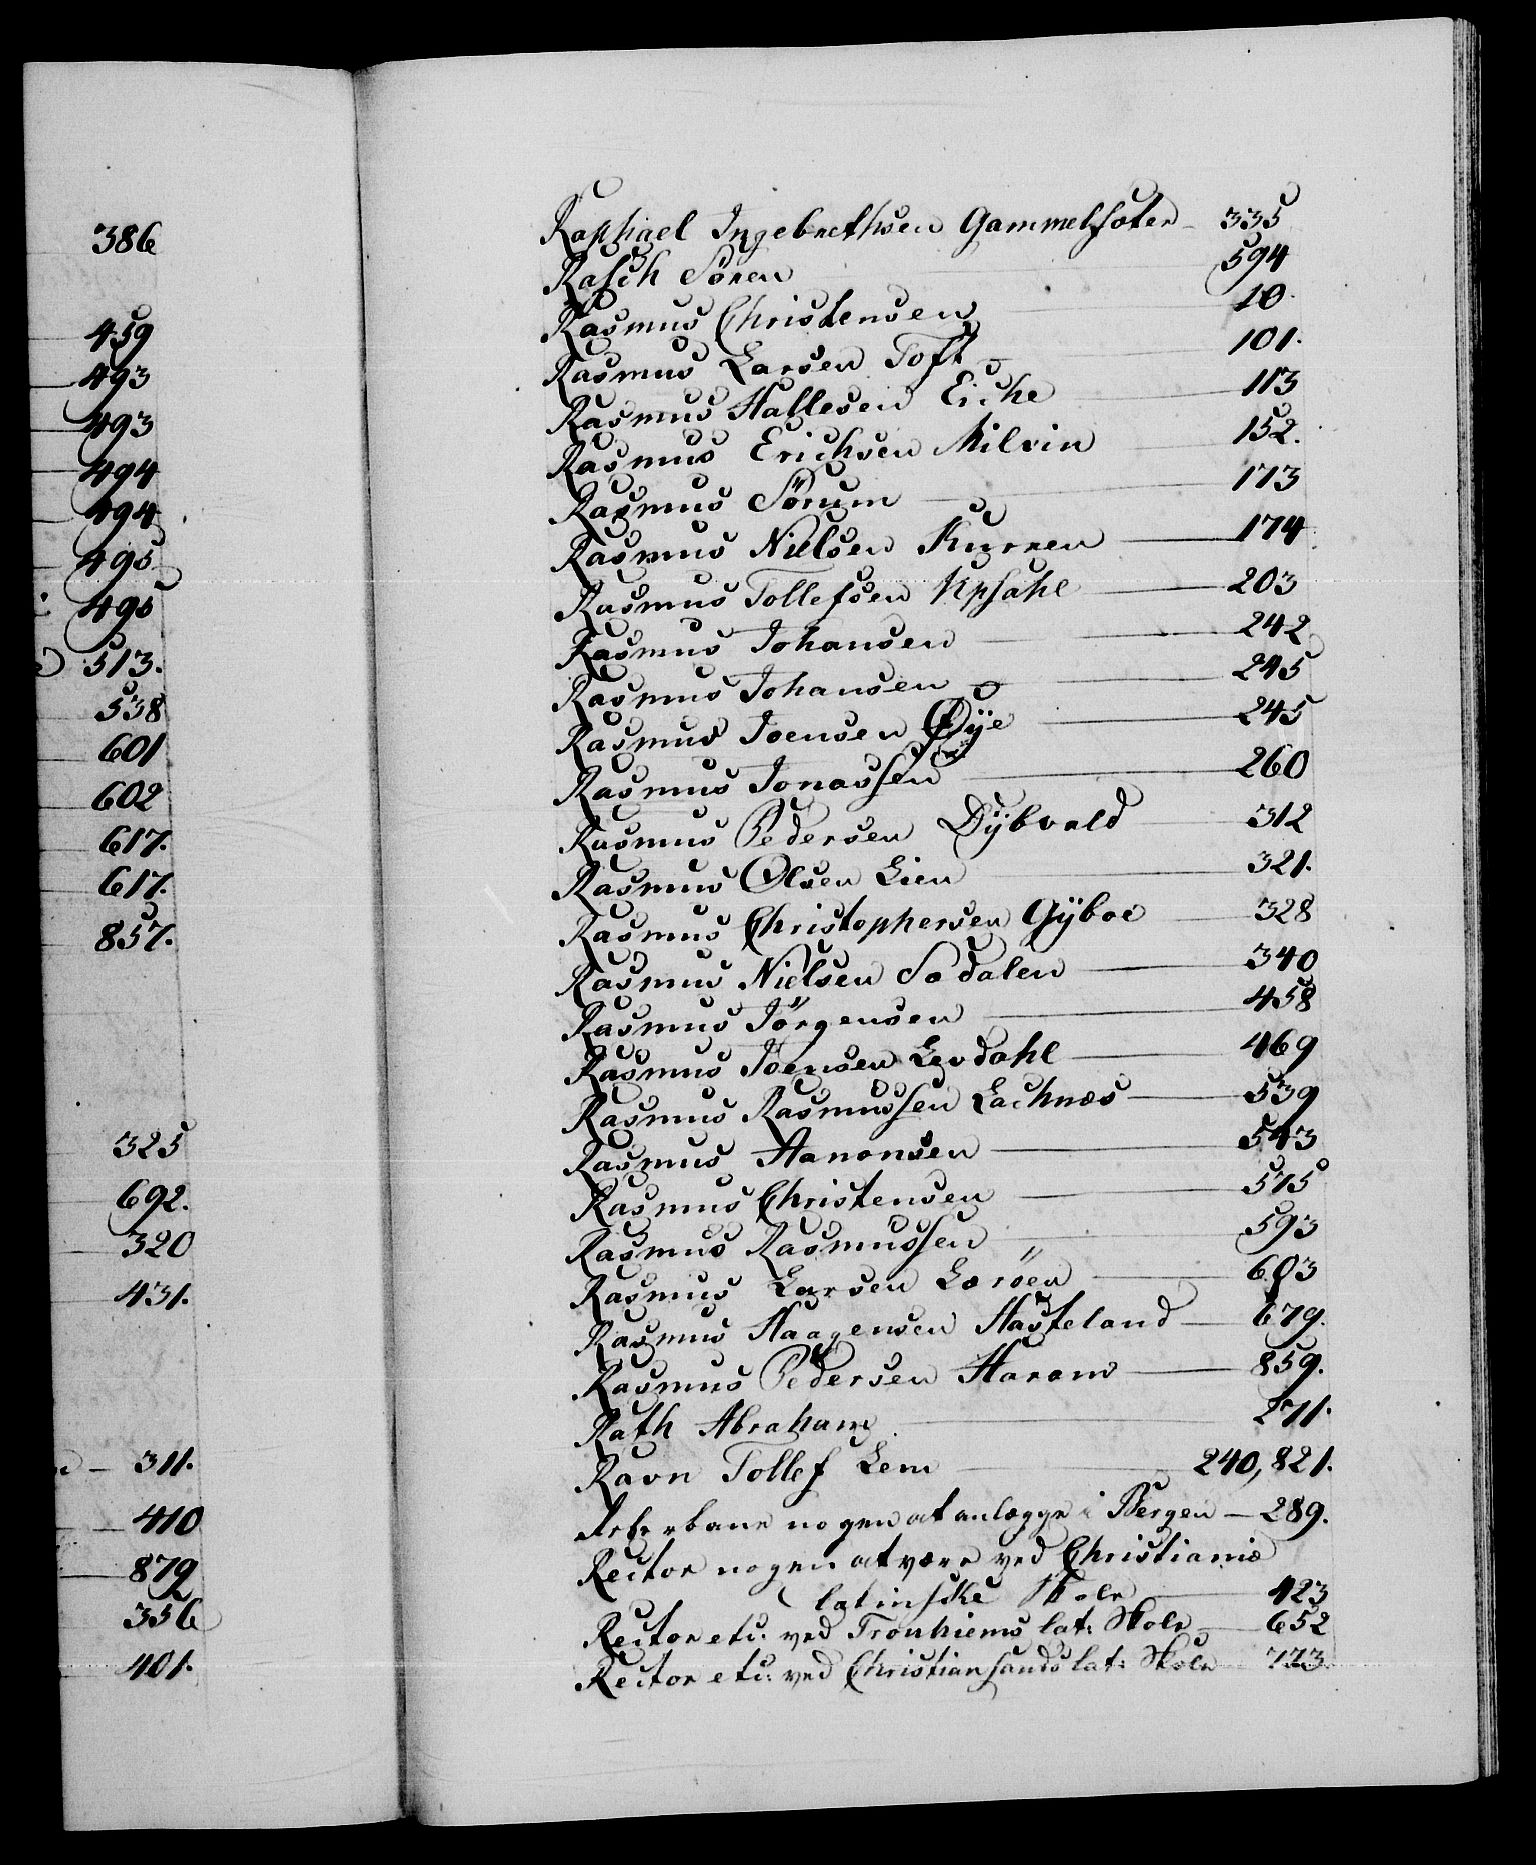 386
459
493
493
494
494
495
495
513.
538
601
602
617.
617.
857.
325
692.
320
431.
311.
410
879
356
401.
Raphael Ingebrethsen Gammelsæter 335
Rasch Sören 594
Rasmus Christensen 10
Rasmus Larsen Toft 101.
Rasmus Hallesen Eiche 113
Rasmus Erichsen Milvin 152.
Rasmus Sörum 173
Rasmus Nielsen Kurren 174
Rasmus Tollefsen Upsahl 203
Rasmus Johansen 242
Rasmus Johansen 245
Rasmus Joensen Øÿe 245
Rasmus Jonassen 260
Rasmus Pedersen Dÿbvald 312
Rasmus Olsen Lien 321.
Rasmus Christophersen Gÿboe 328
Rasmus Nielsen Sædalen 340
Rasmus Jörgensen 458
Rasmus Joensen Levdahl 469
Rasmus Rasmussen Lachnæs 539
Rasmus Aanonsen 543
Rasmus Christensen 575
Rasmus Rasmussen 593
Rasmus Larsen Leröen 603
Rasmus Haagensen Hasteland 679.
Rasmus Pedersen Harom 859.
Rath Abraham 271.
Ravn Tollef Lem 240, 821.
nogen at anlægge i Bergen 289.
Rector nogen at være ved Christiania
latinske Skole 423
Rector etc: ved Tronhiems lat: Skole 652
Rector etc: ved Christiansands lat: Skole 773.